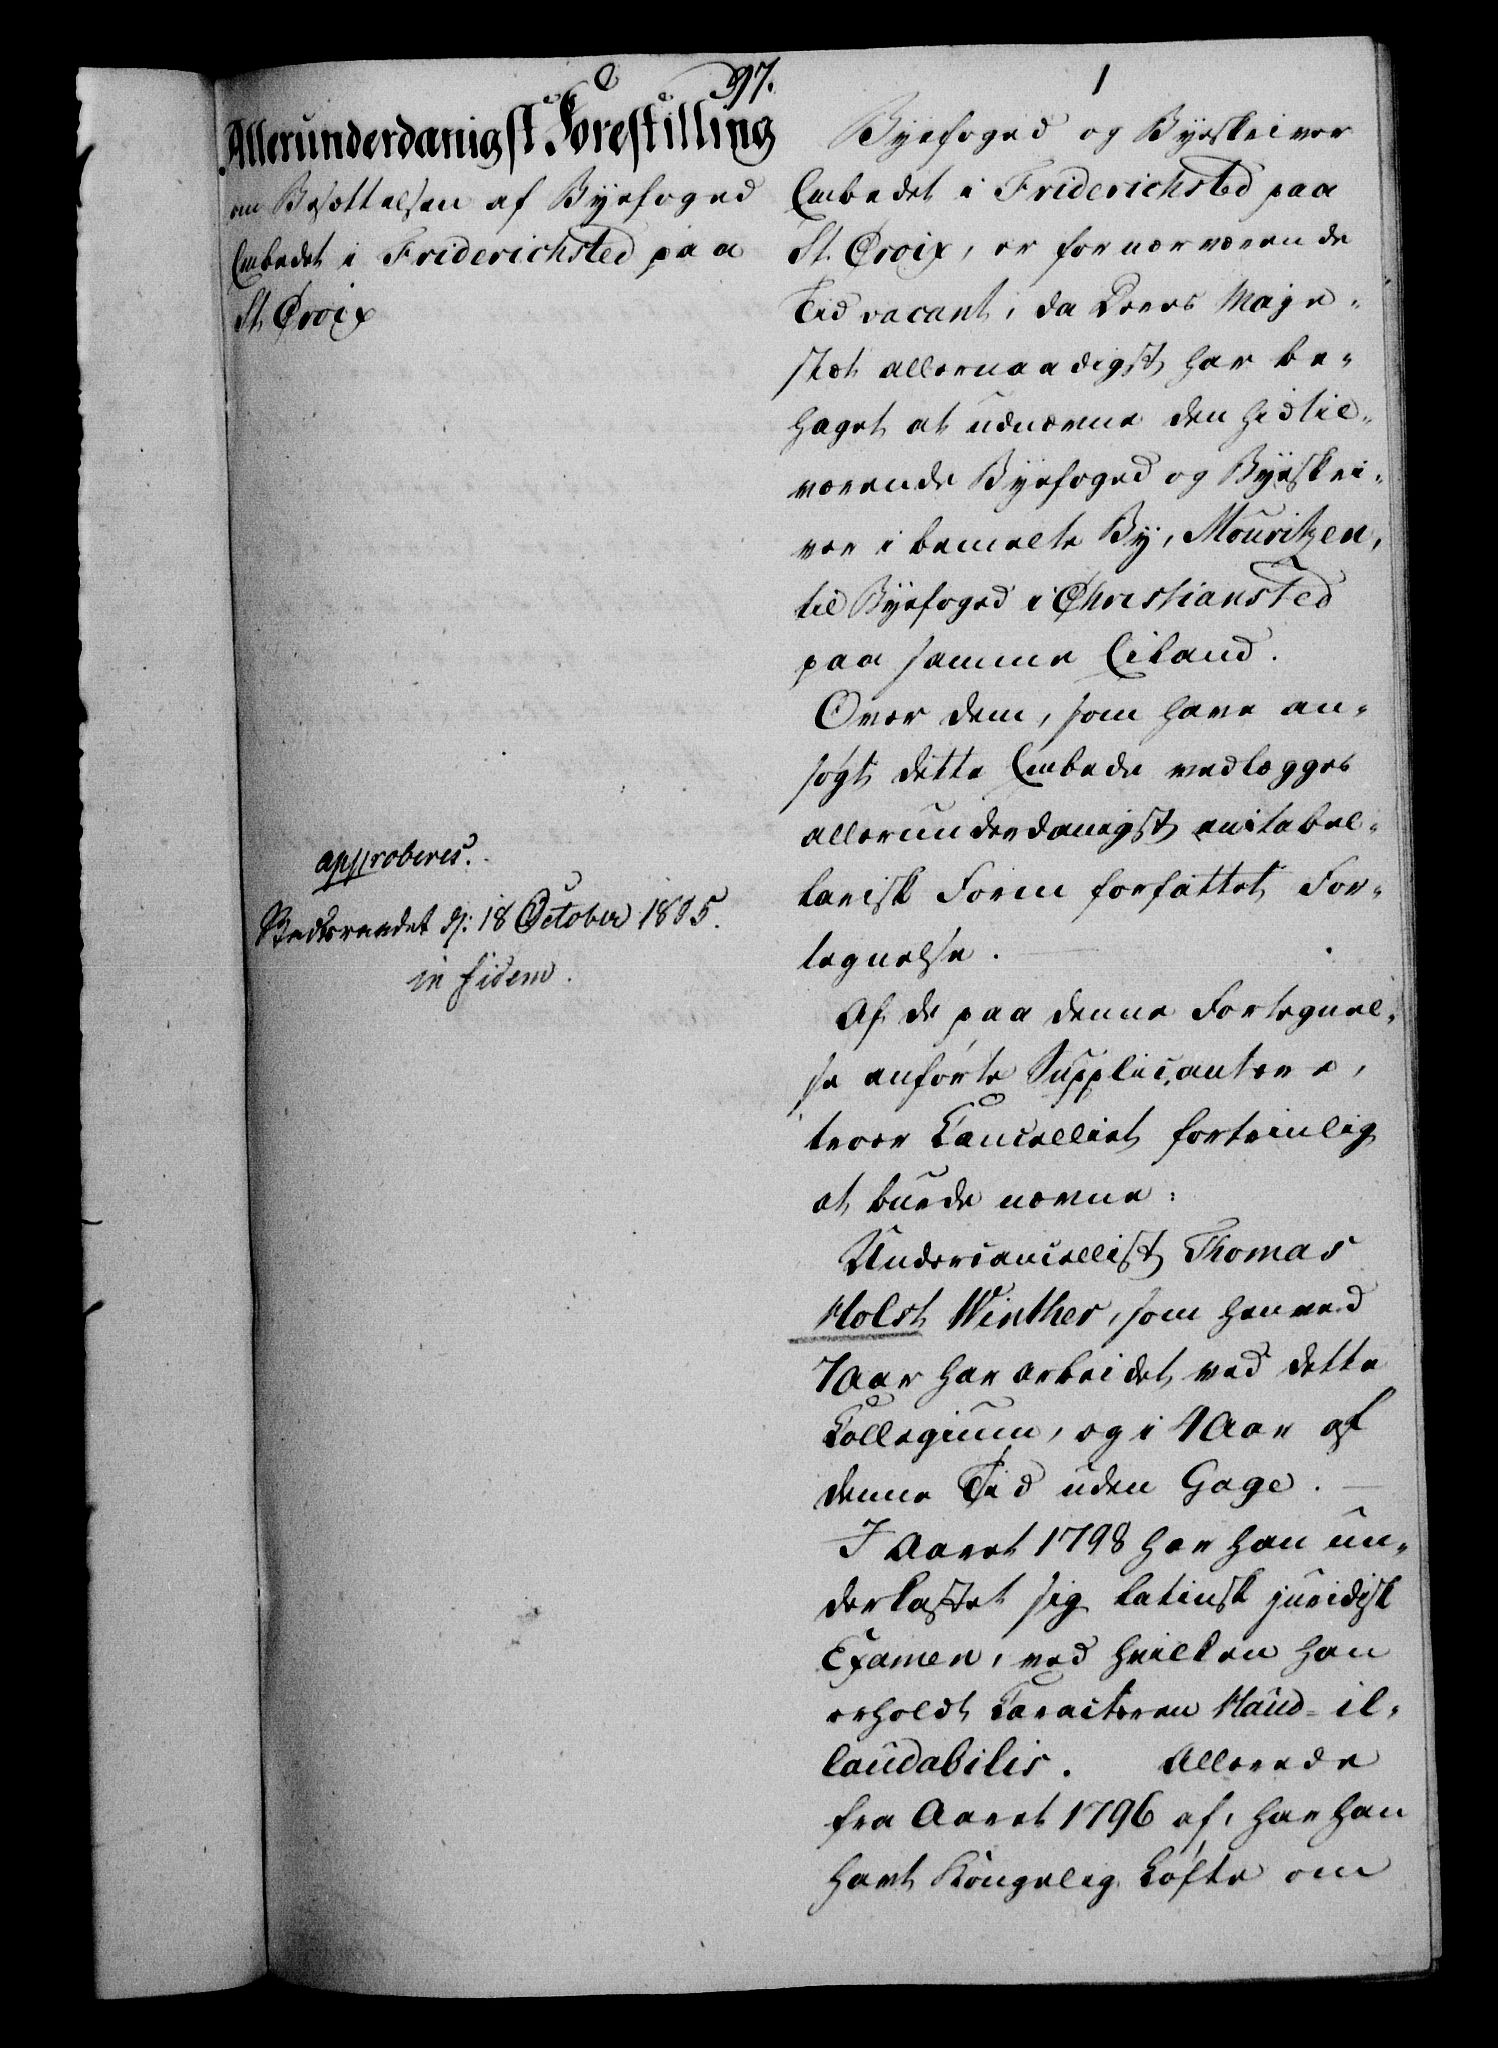 97.
Allerunderdanigst Forestilling
om Besættelsen af Byefoged
Embedet i Friderichsted paa
St Croix
approberes.
Stadsraadet d: 18 October 1805.
in fidem.
1
Byefoged og Byeskriver
Embedet i Friderichsted paa
St. Croix, er for nærværende
Tid vacant, da Deres Maje-
stæt allernaadigst har be-
haget at udnævne den hidtil-
værende Byefoged og Byeskri-
ver i bemelte By, Mouritzen,
til Byefoged i Christiansted
paa samme Eiland.
Over dem, som have an-
søgt dette Embede vedlægges
allerunderdanigst en i tabel-
larisk Form forfattet For-
tegnelse.
Af de paa denne Fortegnel-
se anførte Supplicantere,
troer Cancelliet fortrinlig
at burde nævne:
Undercancellist Thomas
Holst Winther, som henved
7 Aar har arbeidet ved dette
Collegium, og i 4 Aar af
denne Tid uden Gage.
I Aaret 1798 har han un-
derkastet sig latinsk juridisk
Examen, ved hvilken han
erholdt Caracteren Haud-il-
laudabilis. Allerede
fra Aaret 1796 af, har han
havt Kongelig Løfte om